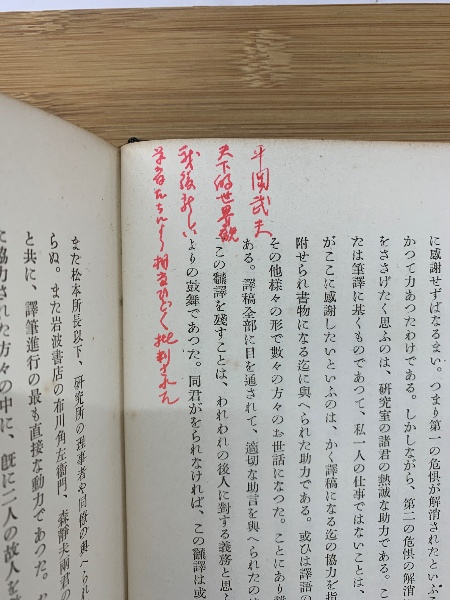 平岡武夫
天下的世界観
戦後新しい
学者たちから相当ひどく批判された
に感謝せずばなるまい。つまり第一の危惧が解消されたといふ
かつて力あつたわけである。しかしながら、第二の危惧の解消
をささげたく思ふのは、研究室の諸君の熱誠な助力である。こ
たは筆譯に基くものであつて、私一人の仕事ではないことは、
がここに感謝したいといふのは、かく譯稿になる迄の協力を指
附せられ書物になる迄に與へられた助力である。或ひは譯語の
その他様々の形で數々の方々のお世話になつた。ことにあり難
ある。譯稿全部に目を通されて、適切な助言を與へられたの
この飜譯を殘すことは、われわれの後人に對する義務と思
よりの鼓舞であつた。同君がをられなければ、この飜譯は或
また松本所長以下、研究所の理事者や同僚の與へられ
らぬ。また岩波書店の布川角左衞門、森靜夫兩君の
と共に、譯筆進行の最も直接な動力であつた。
協力された方々の中に、既に二人の故人を